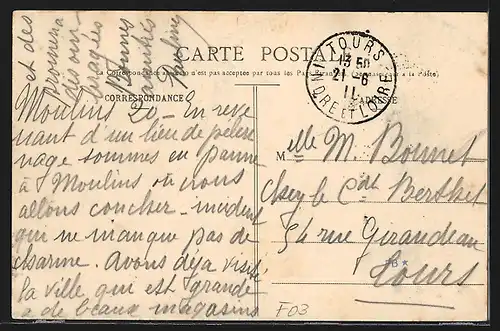 CARTE POSTALE
La Correspondance au recto n'est pas acceptée par tous les pays
à la Poste)
CORRESPONDANCE
ADRESSE
TOURS
13 50
21 - 6
11
INDRE ET LOIRE
Moulins 20 - En reve
nant d'un lieu de pèleri
nage sommes en panne
à Moulins où nous
allons coucher - incident
qui ne manque pas de
charme. Avons déjà visité
la ville qui est grande
a de beaux magasins
et des
promena
des om
bragées
Bonnes
amitiés
Melle M. Bonnet
Chez le Cdt Berthet
54 rue Giraudeau
Tours
F03